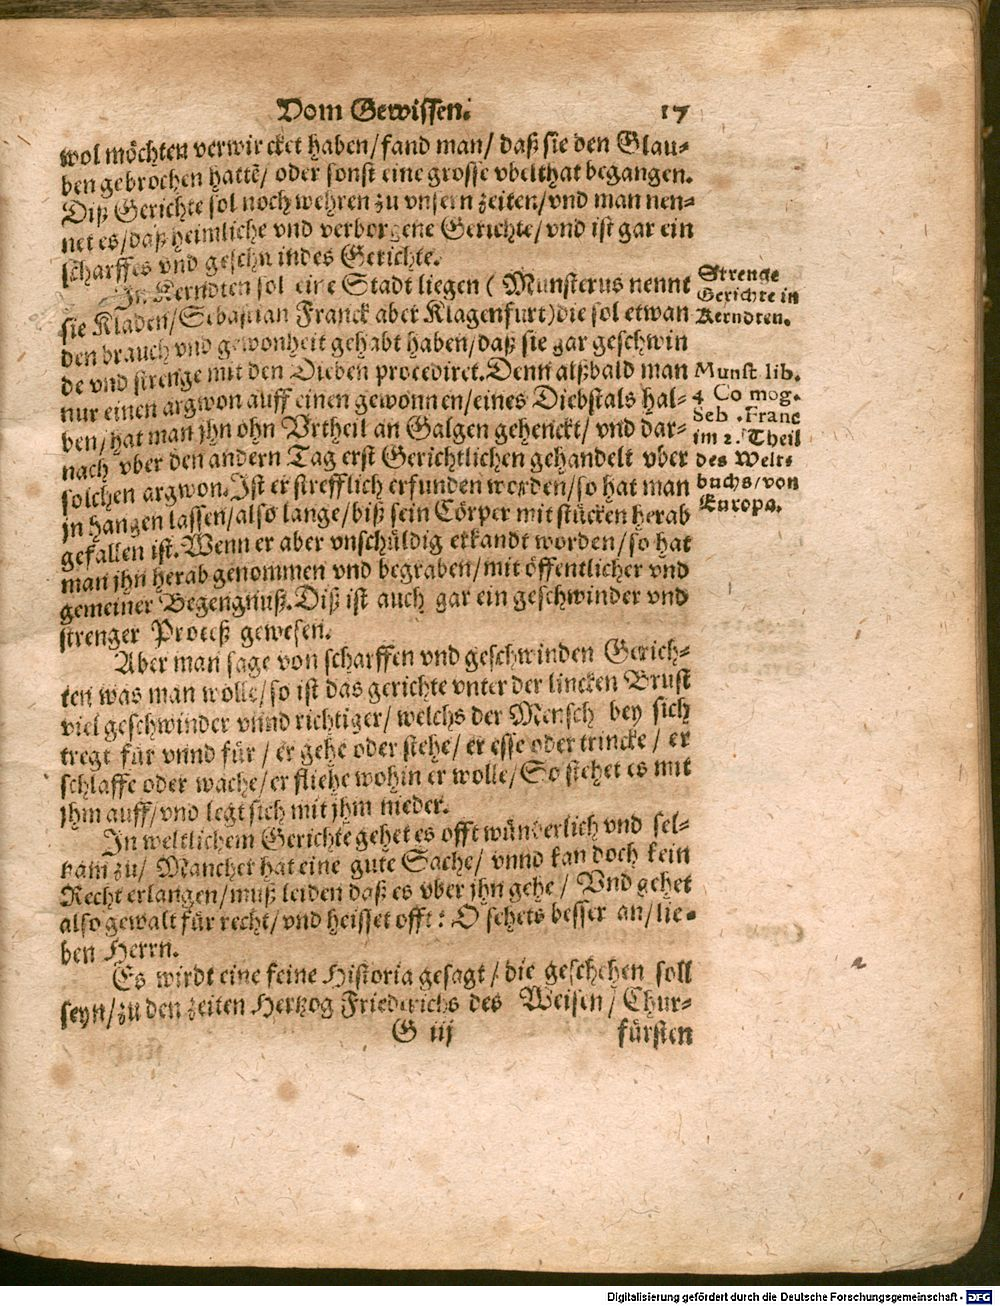 Vom Gewissen. 17
wol möchten verwircket haben/fand man/ daß sie den Glau-
ben gebrochen hattē/ oder sonst eine grosse vbelthat begangen.
Diß Gerichte sol noch wehren zu vnsern zeiten/vnd man nen-
net es/daß heimliche vnd verborgene Gerichte/vnd ist gar ein
scharffes vnd geschwindes Gerichte.
In Kerndten sol eine Stadt liegen ( Munsterus nennt
sie Kladen/Sebastian Franck aber Klagenfurt)die sol etwan
den brauch vnd gewonheit gehabt haben/daß sie gar geschwin
de vnd strenge mit den Dieben procediret.Denn alßbald man
nur einen argwon auff einen gewonnen/eines Diebstals hal-
ben/hat man jhn ohn Vrtheil an Galgen gehenckt/ vnd dar-
nach vber den andern Tag erst Gerichtlichen gehandelt vber
solchen argwon.Ist er strefflich erfunden worden/so hat man
jn hangen lassen/also lange/biß sein Cörper mit stücken herab
gefallen ist.Wenn er aber vnschüldig erkandt worden/so hat
man jhn herab genommen vnd begraben/mit öffentlicher vnd
gemeiner Begengnuß.Diß ist auch gar ein geschwinder vnd
strenger Proceß gewesen.
Strenge
Gerichte in
Kerndten.
Munst. lib.
4 Cosmog.
Seb .Franc
im 2. Theil
des Welt-
buchs/von
Europa.
Aber man sage von scharffen vnd geschwinden Gerich-
ten was man wolle/so ist das gerichte vnter der lincken Brust
viel geschwinder vnnd richtiger/ welchs der Mensch bey sich
tregt für vnnd für / er gehe oder stehe/ er esse oder trincke / er
schlaffe oder wache/er fliehe wohin er wolle/So stehet es mit
jhm auff/vnd legt sich mit jhm nieder.
In weltlichem Gerichte gehet es offt wünderlich vnd sel-
tzam zu/ Mancher hat eine gute Sache/ vnnd kan doch kein
Recht erlangen/muß leiden daß es vber jhn gehe / Vnd gehet
also gewalt für recht/vnd heisset offt: O sehets besser an/lie-
ben Herrn.
Es wirdt eine feine Historia gesagt / die geschehen soll
seyn/zu den zeiten Hertzog Friederichs des Weisen / Chur-
G iij fürsten
Digitalisierung gefördert durch die Deutsche Forschungsgemeinschaft - DFG